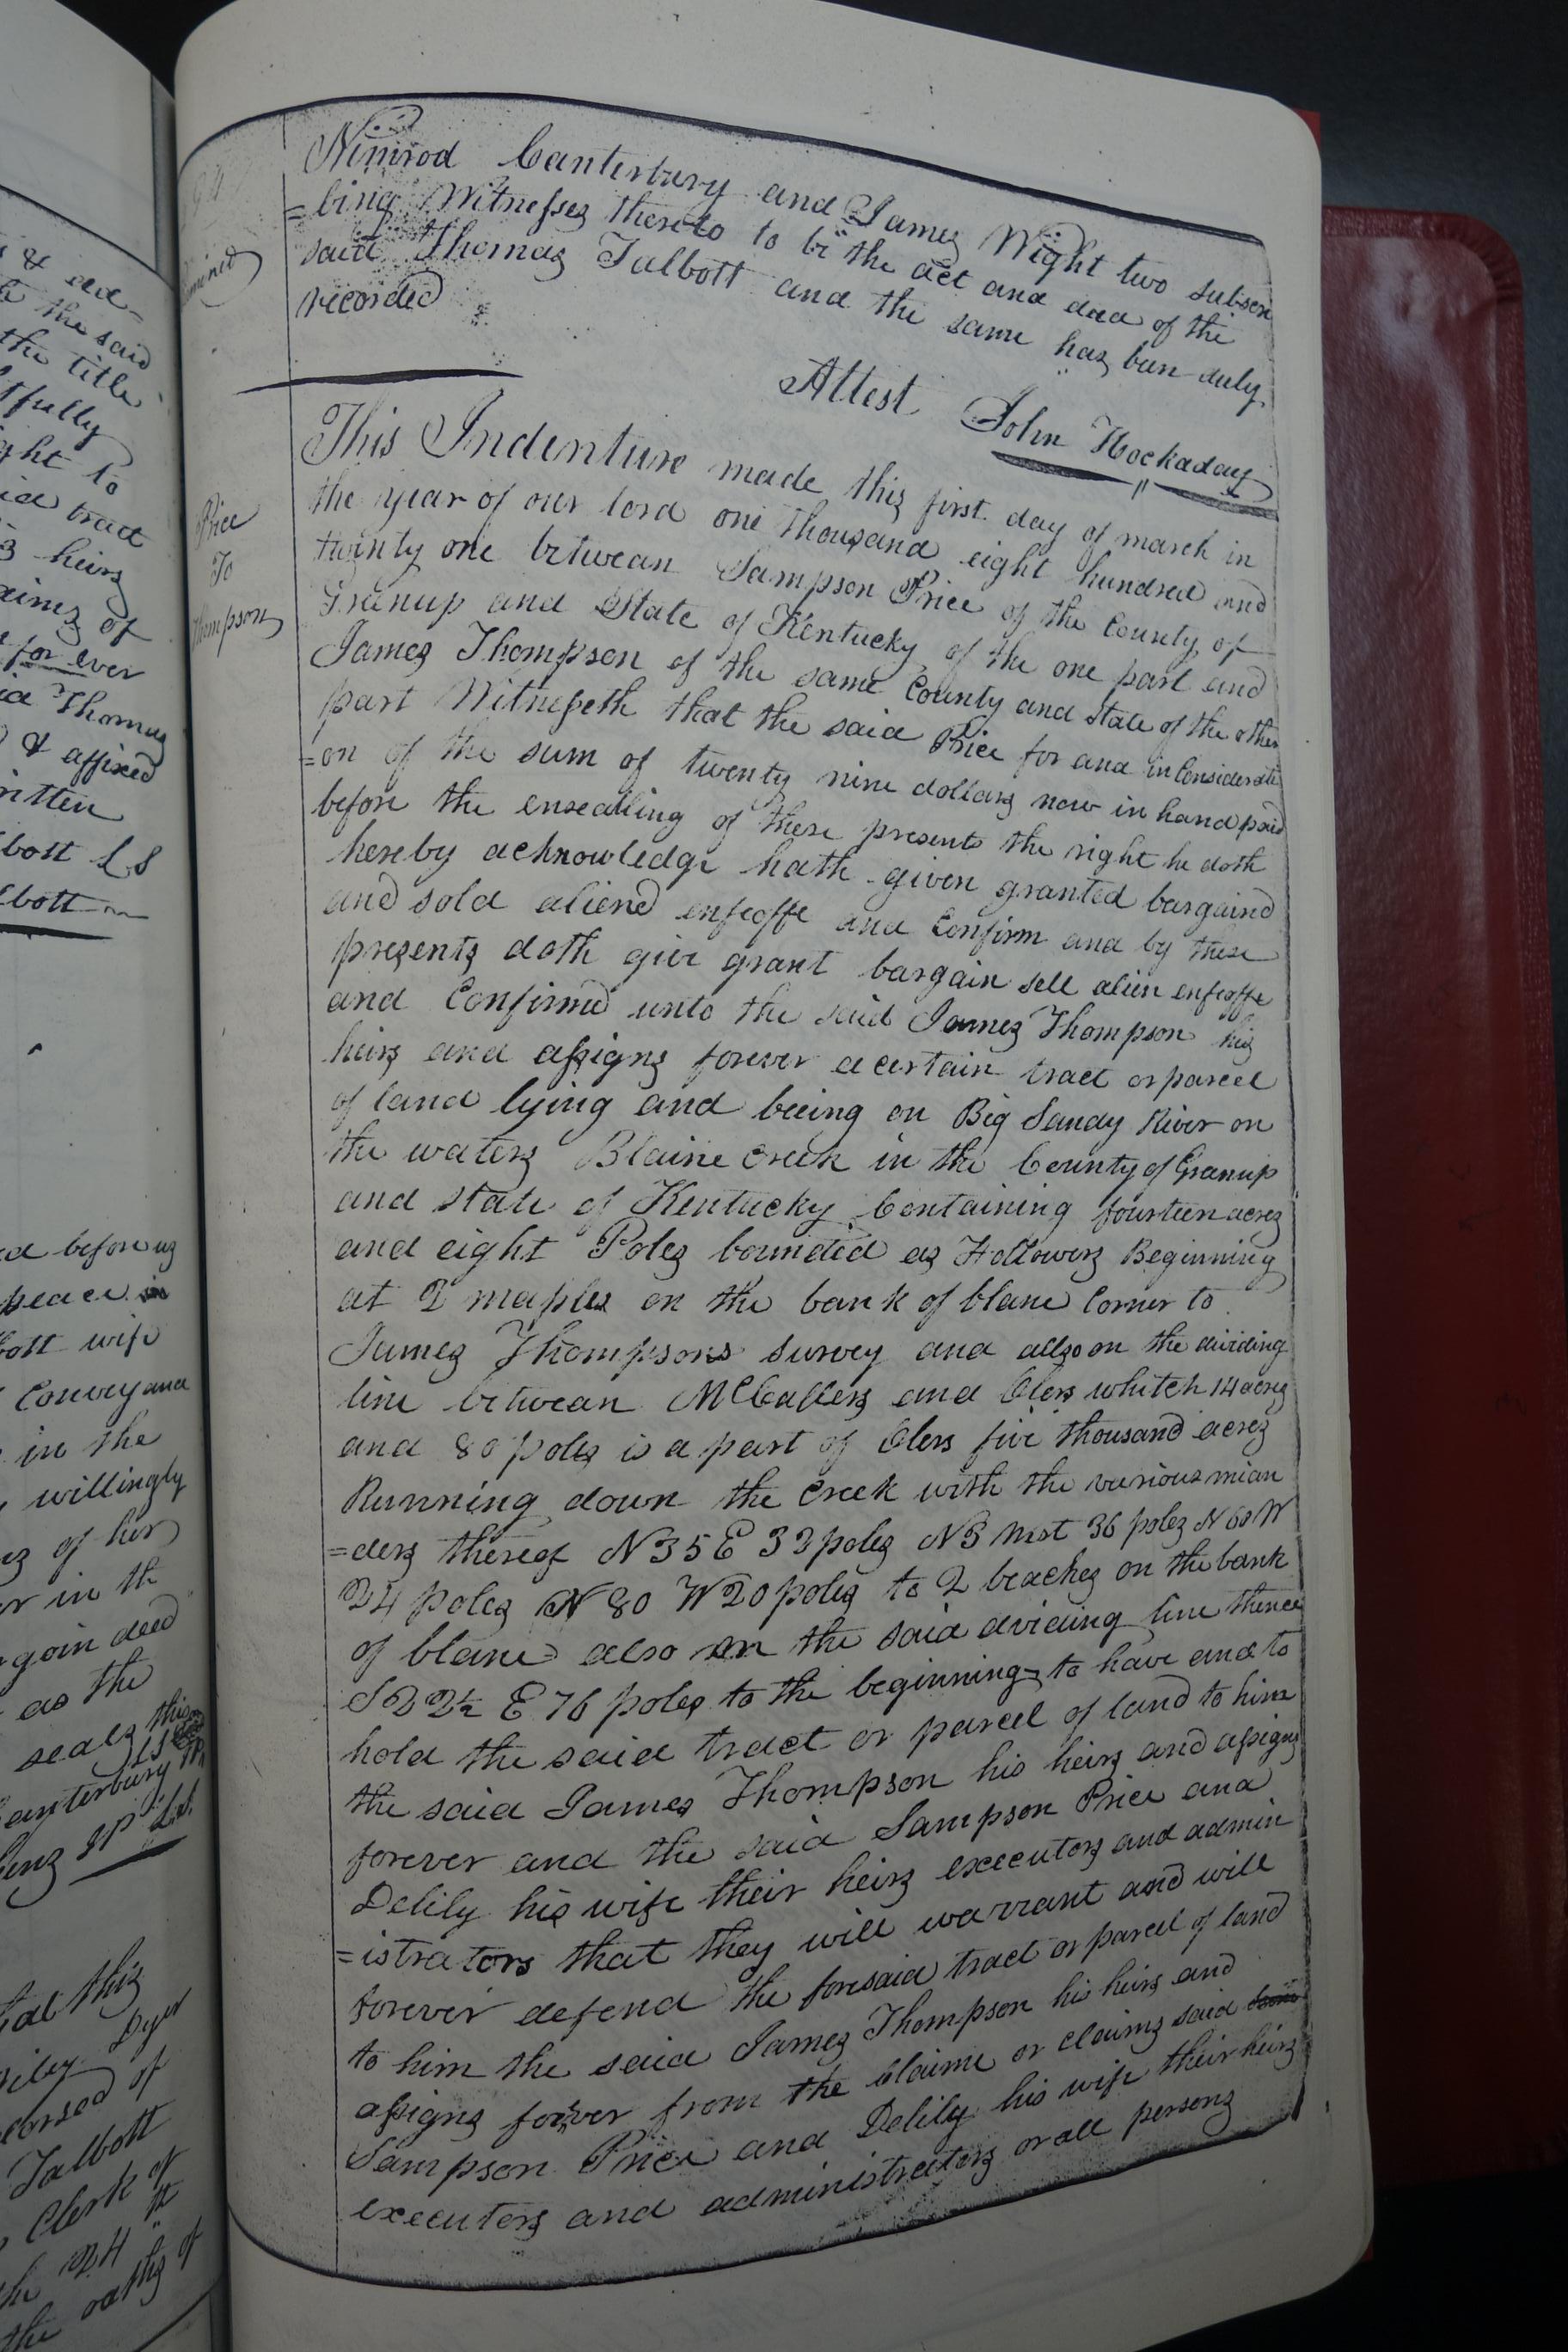 s & ded=
the said
the title
tfully
ght to
id tract
3 heirs
aims of
for ever
id Thomas
) & affixed
ritten
bott LS
lbott
ed before us
peace in
bott wife
Convey and
in the
willingly
es of her
er in th
rgoin deed
as the
seals this
LS
Canterbury
JP L.S.
tal this
Dyer
riley
corsed of
Talbott
Clerk of
the 24th
the oaths of
94
Price
To
Thompson
Nimrod Canterbury and James Wight two subscri
=bing Witnesses thereto to be the act and deed of the
said Thomas Talbott and the same has been duly
recorded
Attest John Hockaday
This Indenture made this first day of march in
the year of our lord one thousand eight hundred and
twinty one between Sampson Price of the County of
Grenup and State of Kentucky of the one part and
James Thompson of the same County and State of the other
part Witnesseth that the said Price for and in Considerati
=on of the sum of twenty nine dollars now in hand paid
before the ensealling of these presents the right he doth
hereby acknowledge hath given granted bargaind
and sold aliend enfeoffe and Confirm and by these
presents doth give grant bargain sell alien enfeoffe
and Confirmd unto the said James Thompson his
heirs and assigns forever a certain tract or parcel
of land lying and being on Big Sandy River on
the waters Blaine Creek in the County of Granup
and state of Kentucky Containing fourteen acres
and eight Poles bounded as Hollowers Beginning
at 2 maples on the bank of blane Corner to
James Thompsons survey and allso on the dividing
line between McCallers and Clers whitch 14 acres
and 80 poles is a part of Clers five thousand acres
Running down the Creek with the various mian
=ders thereof N35E 32 poles N3 West 36 poles N60W
24 poles N 80 W 20 poles to 2 beaches on the bank
of blane also on the said dividing line thence
S 22½ E 76 poles to the beginning to have and to
hold the said tract or parcel of land to him
the said James Thompson his heirs and assigns
forever and the said Sampson Price and
Delily his wife their heirs executors and admin
=istrators that they will warrant and will
forever defend the foresaid tract or parcel of land
to him the said James Thompson his heirs and
assigns forever from the Claime or Claims said
Sampson Price and Delily his wife their heirs
executors and administrators or all persons